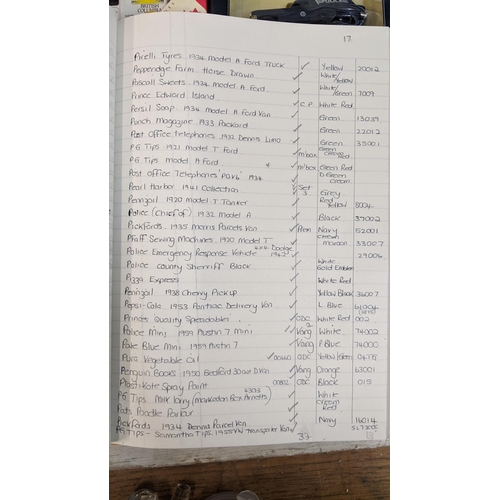 17
Pirelli Tyres 1934 Model A Ford Truck ✓ Yellow 20012
Pepperidge Farm Horse Drawn ✓ White/Yellow
Pascall Sweets 1934 Model A Ford ✓ White/Green 7009
Prince Edward Island ✓
Persil Soap 1934 Model A Ford Van ✓ C.P White Red
Punch Magazine 1933 Packard ✓ Green 13039
Post Office Telephones 1932 Dennis ✓ Green 22012
PG Tips 1921 Model T Ford ✓ m'box Green Cream Red 35001
PG Tips Model A Ford ✓ m'box Green Red
Post Office Telephones 1934 ✓ D Green Cream
Pearl Harbor 1941 Collection ✓ Set 3 Grey
Pennzoil 1920 Model T Tanker ✓ Red Yellow 8004
Police (Chief of) 1932 Model A ✓ Black 39002
Pickfords 1935 Morris Parcels Van ✓ Navy 52001
Pfaff Sewing Machines 1920 Model T ✓ Cream Maroon 33007
Police Emergency Response Vehicle 4x4 Dodge 1942 ✓ 29006
Police County Sherriff Black ✓ White Gold Emblem
Pizza Express ✓ White Red
Pennzoil 1938 Chevy Pickup ✓ Yellow Black 36007
Pepsi-Cola 1953 Pontiac Delivery Van ✓ L Blue
Princes Quality Spreadables ✓ ODC White Red 002
Police Mini 1959 Austin 7 Mini ✓ Vang 2 White 74002
Pale Blue Mini 1959 Austin 7 ✓ Vang P Blue 74000
Pura Vegetable Oil ✓ 00440 ODC Yellow/Green
Penguin Books 1950 Bedford 30cwt Van ✓ Vang Orange 63001
Plasti-Kote Spray Paint 00102 ✓ ODC Black 015
PG Tips Milk Lorry ✓ White Cream Red
Pats Poodle Parlour ✓
Pickfords 1934 Dennis Parcel Van ✓ Navy 16014
PG Tips - Samantha Tips 1955 VW Transporter Van ✓
33